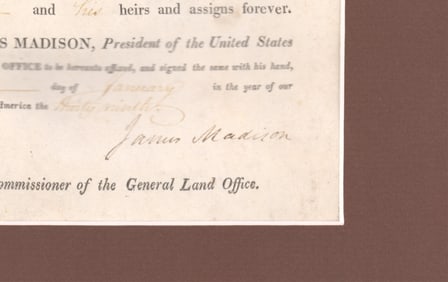 and his heirs and assigns forever.
S MADISON, President of the United States
OFFICE to be hereunto affixed, and signed the same with his hand,
day of January in the year of our
America the thirty ninth.
James Madison
ommissioner of the General Land Office.